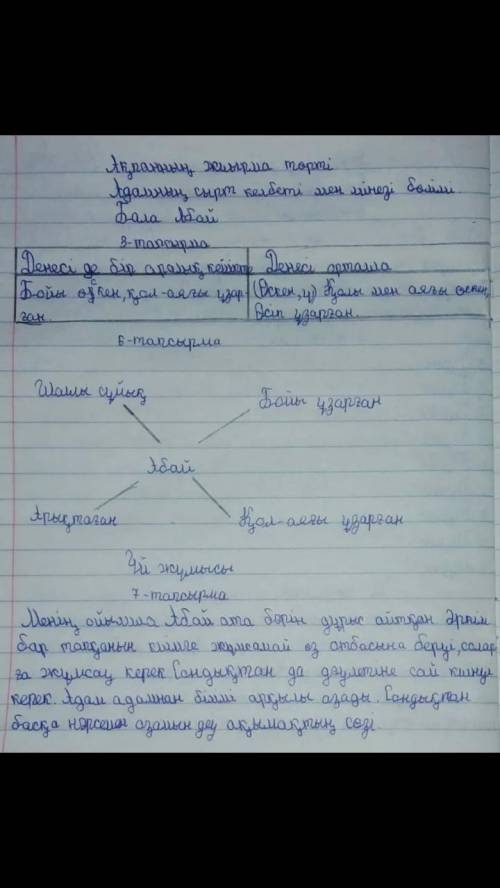 Ақпанның жиырма төрті
Адамның сырт келбеті мен мінезі бөлімі
Бала Абай
3-тапсырма
Денесі де бір аралық кейіпте Денесі орташа
Бойы өскен, қол-аяғы ұзар- (Өскен, ұ) Қолы мен аяғы өскен,
ған. Өсіп ұзарған.
6-тапсырма
Шашы сұйық Бойы ұзарған
Абай
Арықтаған Қол-аяғы ұзарған
Үй жұмысы
7-тапсырма
Менің ойымша Абай ата бәрін дұрыс айтқан Әркім
бар тапқанын киімге жұмсамай өз отбасына беруі, солар
ға жұмсау керек. Сондықтан да дәулетіне сай киінуі
керек. Адам адамнан білімі арқылы озады. Сондықтан
басқа нәрсемен озамын деу ақымақтың сөзі.